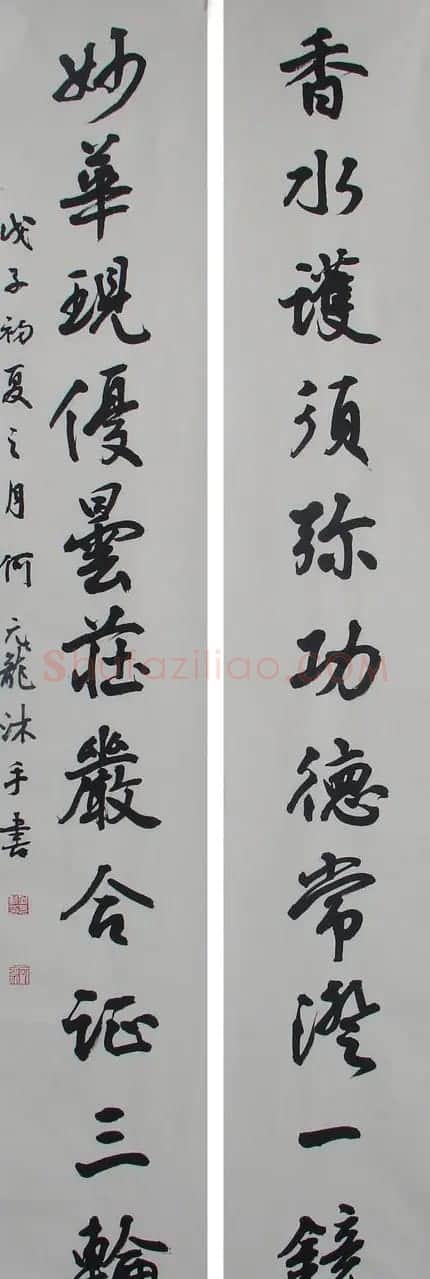 香水護須弥功德常澄一鏡
妙華現優曇莊嚴合证三輪
戊子初夏之月何元龍沐手書
Shufaziliao.com